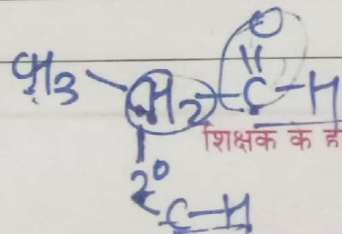 O
||
CH3 - CH2 - C - H
शिक्षक के ह
2°
C-H